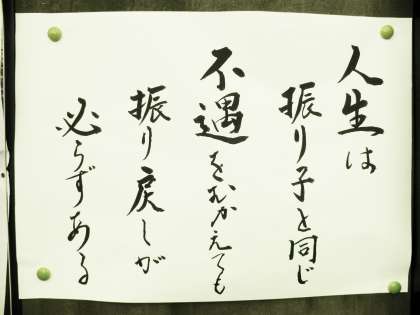 人生は
振り子と同じ
不遇をむかえても
振り戻しが
必らずある